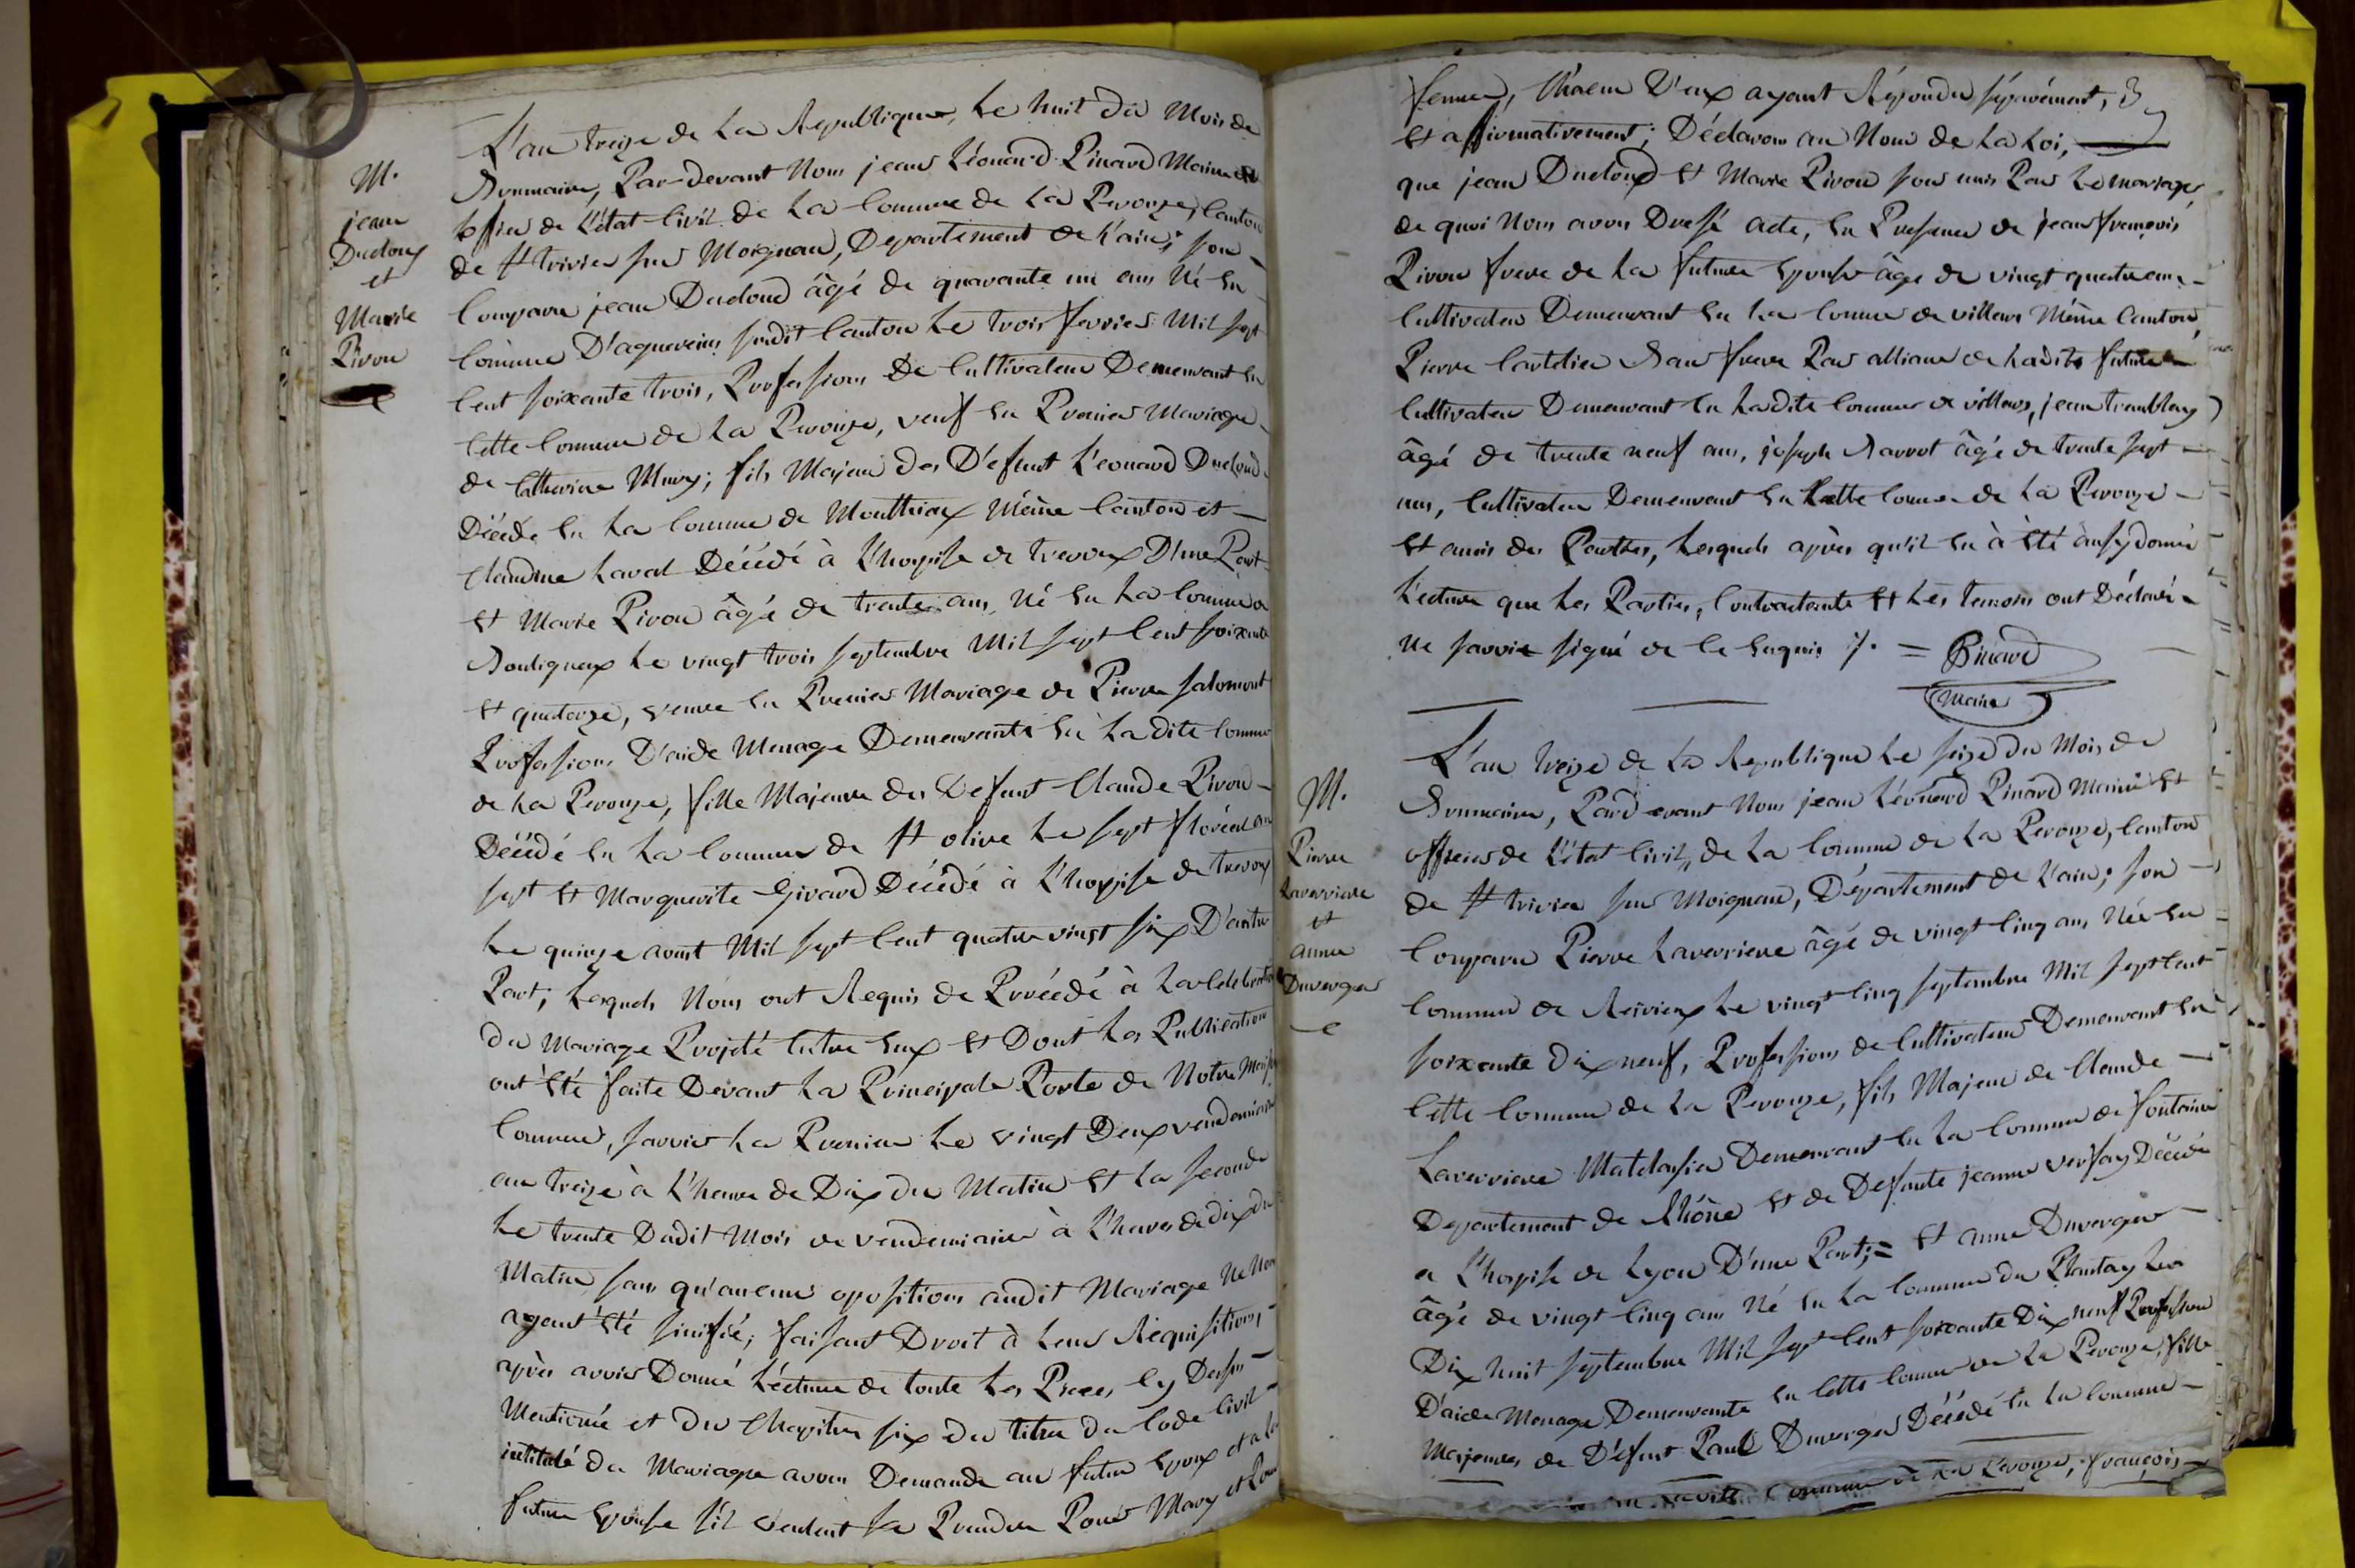 M.
jean
Ducloux
et
Marie
Pivon
L'an treize de La Republique, Le huit du Mois de
Brumaire, Par-devant Nous jean Léonard Pinard Maire et
offier de L'état Civil de La Commune de La Perouze, Canton
de St trivier sur Moignean, Departement de L'ain; son
Comparu jean Ducloud âgé de quarante un ans Né En
Comune D'aguereins susdit Canton Le trois fevrier Mil sept
Cent soixante trois, Profession De Cultivateur Demeurant En
Cette Commune de La Perouze, veuf En Premier Mariage
de Catherine Mury; fils Majeur des Défunt Léonard Ducloud
Décédé En La Commune de Monthieux Même Canton et
Claudine Laval Décédé à L'hospise de trevoux D'une Part
Et Marie Pivon âgé de trente ans, Né En La Commune de
Bouligneux Le vingt trois septembre Mil sept Cent soixante
Et quatorze, veuve En Premier Mariage de Pierre salomont
Profession D'aide Menage Demeurante En La dite Commune
de La Perouze, fille Majeure des Defunt Claude Pivon
Décédé En La Commune de St olive Le sept floréal an
sept Et Marguerite Girard Décédé à L'hospise de trevoux
Le quinze aout Mil sept Cent quatre vingt six D'autre
Part; Lesquels Nous ont Requis de Procédé à La Celebration
du Mariage Projété Entre Eux Et Dont Les Publication
ont Eté faite Devant La Principale Porte de Notre Maison
Commune, savoir La Premiere Le vingt Deux vendemiaire
an treize à L'heure de Dix du Matin Et La seconde
Le trente Dudit Mois de vendemiaire à L'heure de dix du
Matin, sans qu'aucune opositions audit Mariage Ne Nous
ayent Eté sinifié; faisant Droit à Leur Réquisitions,
après avoir Donné Lécture de toute Les Pieces Cy Dessus
Mentionné et du Chapitre six du titre du Code Civil
intitulé du Mariage avons Demandé au futur Epoux et a la
future Epouse s'il veulent se Prendre Pour Mary et Pour
femme, Chacun D'eux ayant Répondu séparément,
Et affirmativement; Déclarons au Nom de La Loi,
que jean Ducloux Et Marie Pivon sont unis Par Le mariage,
de quoi Nous avons Dressé acte, En Presence de jean françois
Pivon frere de La future Epouse âgé de vingt quatre ans
Cultivateur Demeurant En La Comune de villars Même Canton,
Pierre Cartelier Beau frere Par alliance de Ladite future
Cultivateur Demeurant En Ladite Commune de villars, jean tremblay
âgé de trente neuf ans, joseph Barrot âgé de trente sept
ans, Cultivateur Demeurant En Cette Comune de La Perouze
Et amis des Parties, Lesquels après qu'il En à Eté aussy donné
Lecture que Les Parties, Contractante Et Les temoins ont Déclaré
Ne savoir signé de Ce Enquis ./. = Pinard
Maire
M.
Pierre
Laverriere
et
anne
Duverger
L'an treize de La Republique Le seize du Mois de
Brumaire, Pardevant Nous jean Léonard Pinard Maire Et
officier de L'état Civil, de La Commune de La Perouze, Canton
de St trivier sur Moignean, Département de L'ain; son
Comparu Pierre Laverriere âgé de vingt Cinq ans, Née En
Commune de Reirieux Le vingt Cinq septembre Mil sept Cent
soixante Dix neuf, Profession de Cultivateur Demeurant En
Cette Commune de La Perouze, fils Majeur de Claude
Laverriere Matelassier Demeurant En La Commune de fontaine
Departement de Rhône Et de Defunte jeanne versay Décédé
a L'hospise de Lyon D'une Part; = Et anne Duverger
âgé de vingt Cinq ans Né En La Commune du Plantay Le
Dix huit septembre Mil sept Cent soixante Dix neuf Profession
D'aide Menage Demeurante En Cette Comune de La Perouze, fille
Majeures de Défunt Paul Duverger Décédé En La Commune
Commune de La Perouze, françois